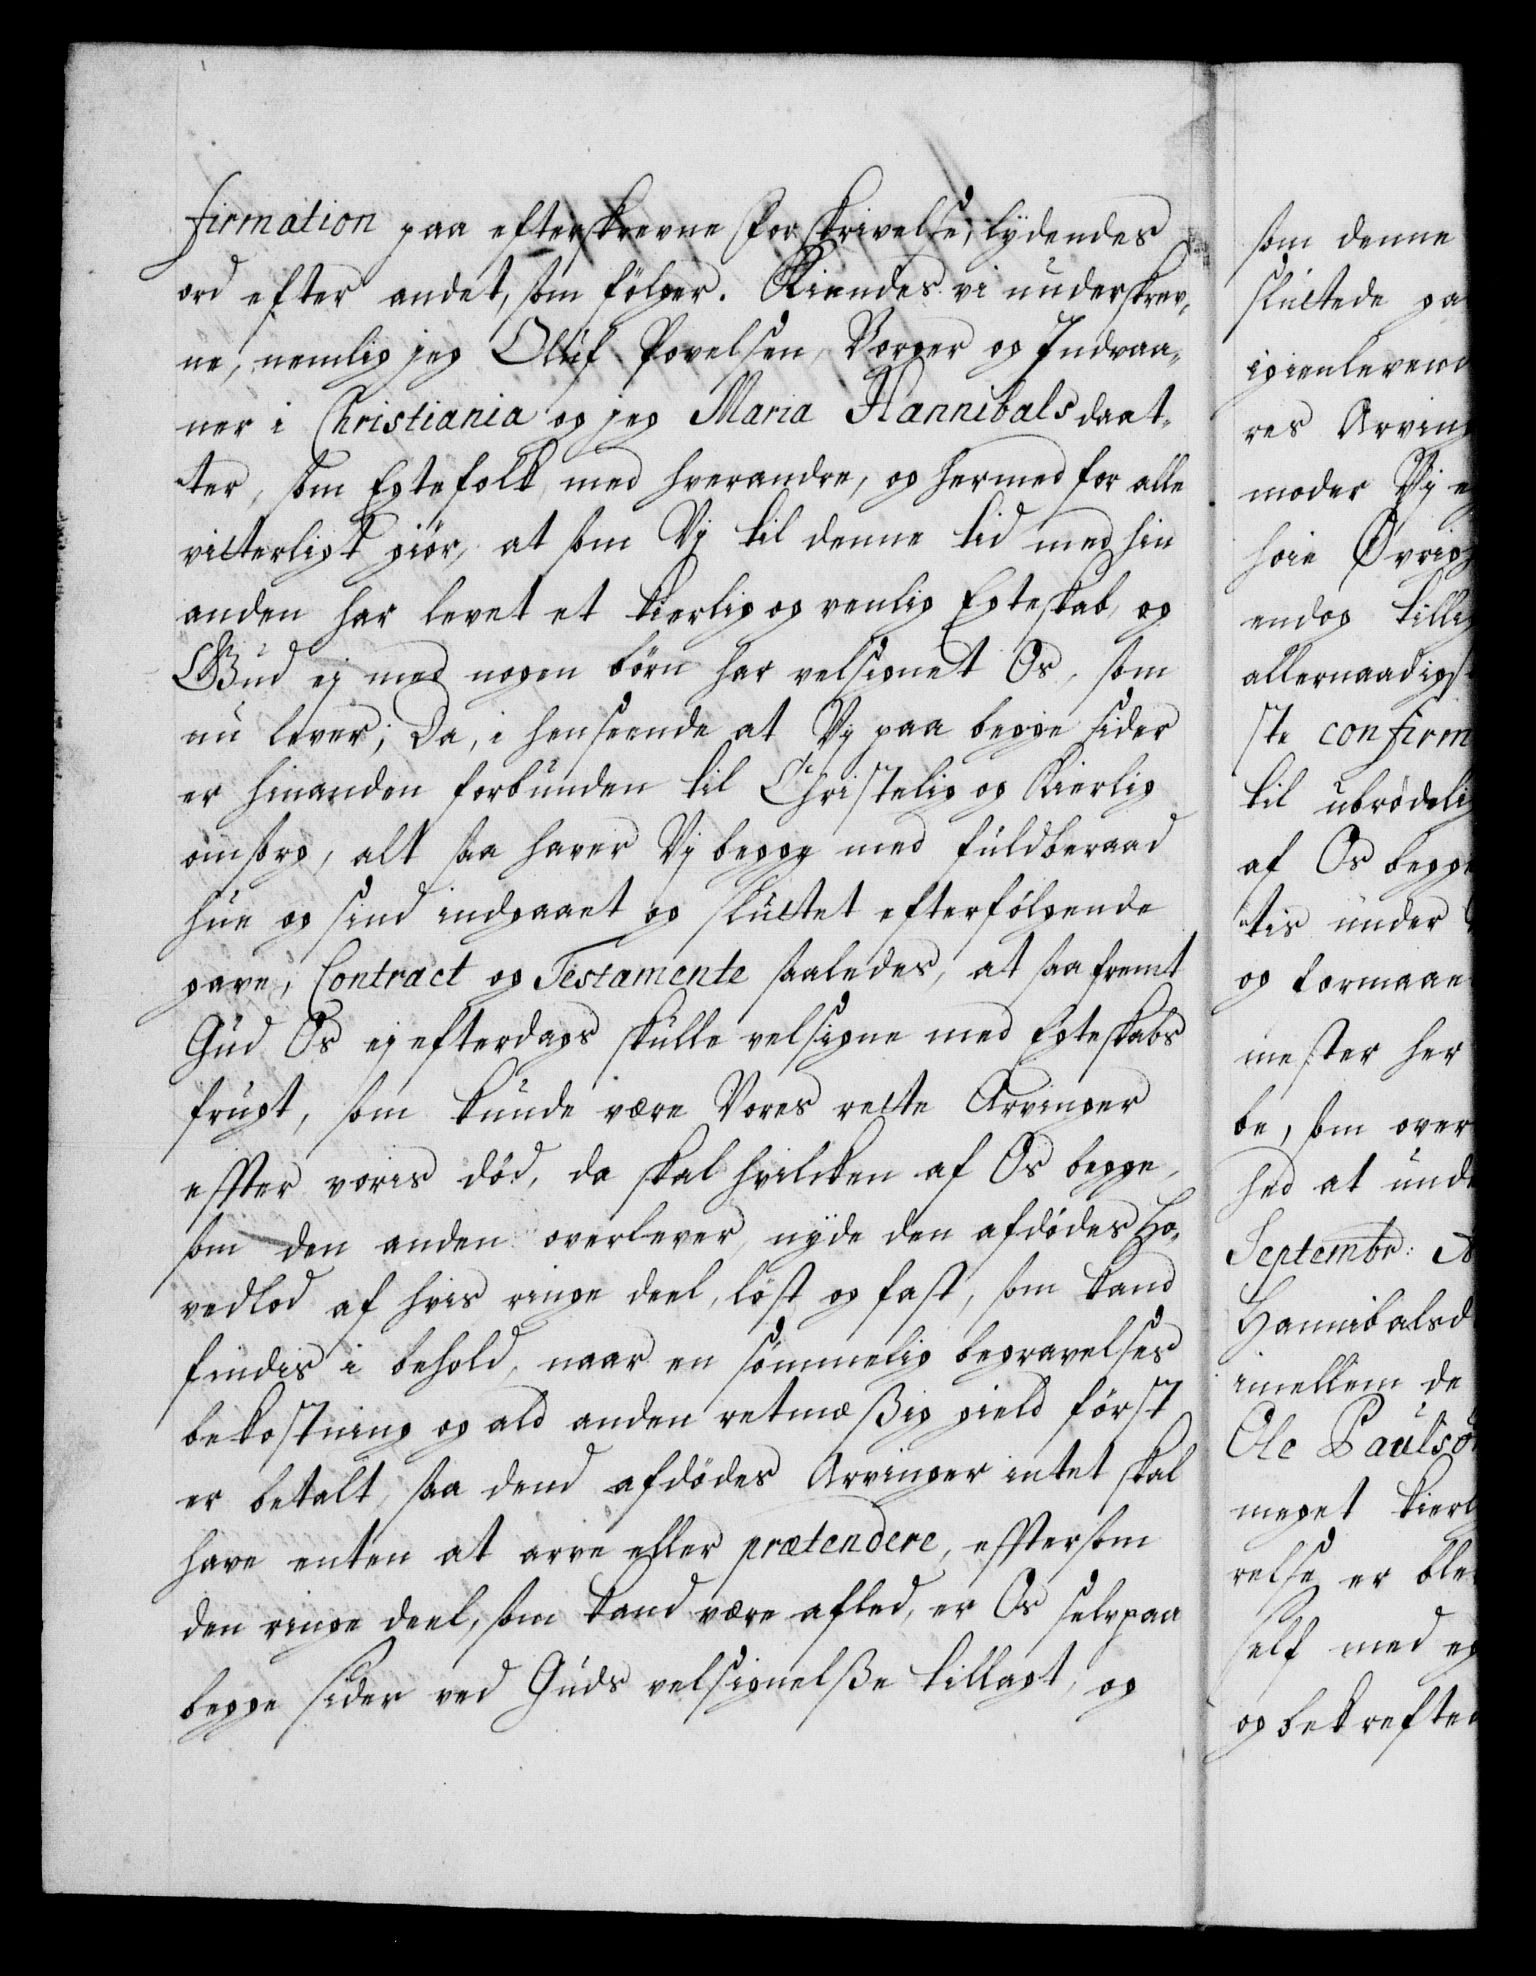 firmation paa efterskrevne forskrivelse, lydendes
ord efter andet, som fölger. Kiendes vi underskrev,
ne, nemlig jeg Oluf Povelsen, Borger og Indvaa,
ner i Christiania og jeg Maria Hannibals daat,
ter, som Egtefolk med hverandre, og hermed for alle
vitterligt giör, at som Vj til denne tid med hin
anden har levet et kierlig og venlig Egteskab, og
Gud ej med nogen börn har velsignet Os, som
nu lever; Da, i henseende at Vj paa begge sider
er hinanden forbunden til Christelig og Kierlig
omsorg, alt saa haver Vj begge med fuldberaad
hue og sind indgaaet og sluttet efterfölgende
gave, Contract og Testamente saaledes, at saafremt
Gud Os ej efterdags skulle velsigne med Egteskabs
frugt, som kunde være Vores rette Arvinger
effter voris död, da skal hvilcken af Os begge,
som den anden overlever, nyde den afdödes Ho,
vedlod af hvis ringe deel, löst og fast, som kand
findis i behold, naar en sömmelig begravelses
bekostning og ald anden retmæßig gield först
er betalt, saa dend afdödes Arvinger intet skal
have enten at arve eller prætendere, efftersom
den ringe deel, som kand være afled, er Os selv paa
begge sider ved Guds velsignelße tillagt, og
som denne
sluttede ga
igienlevend
res Arving
moder Vj e
höie Øvrigh
endog tillig
allernaadigst
ste confirm
til ubrödelig
af Os begge
tis under
og formaae
mester her
be, som over
hed at unde
Septembr: A
Hannibalsd
imellem de
Ole Paulsö
meget kierl
relse er ble
self med eg
og bekreftet